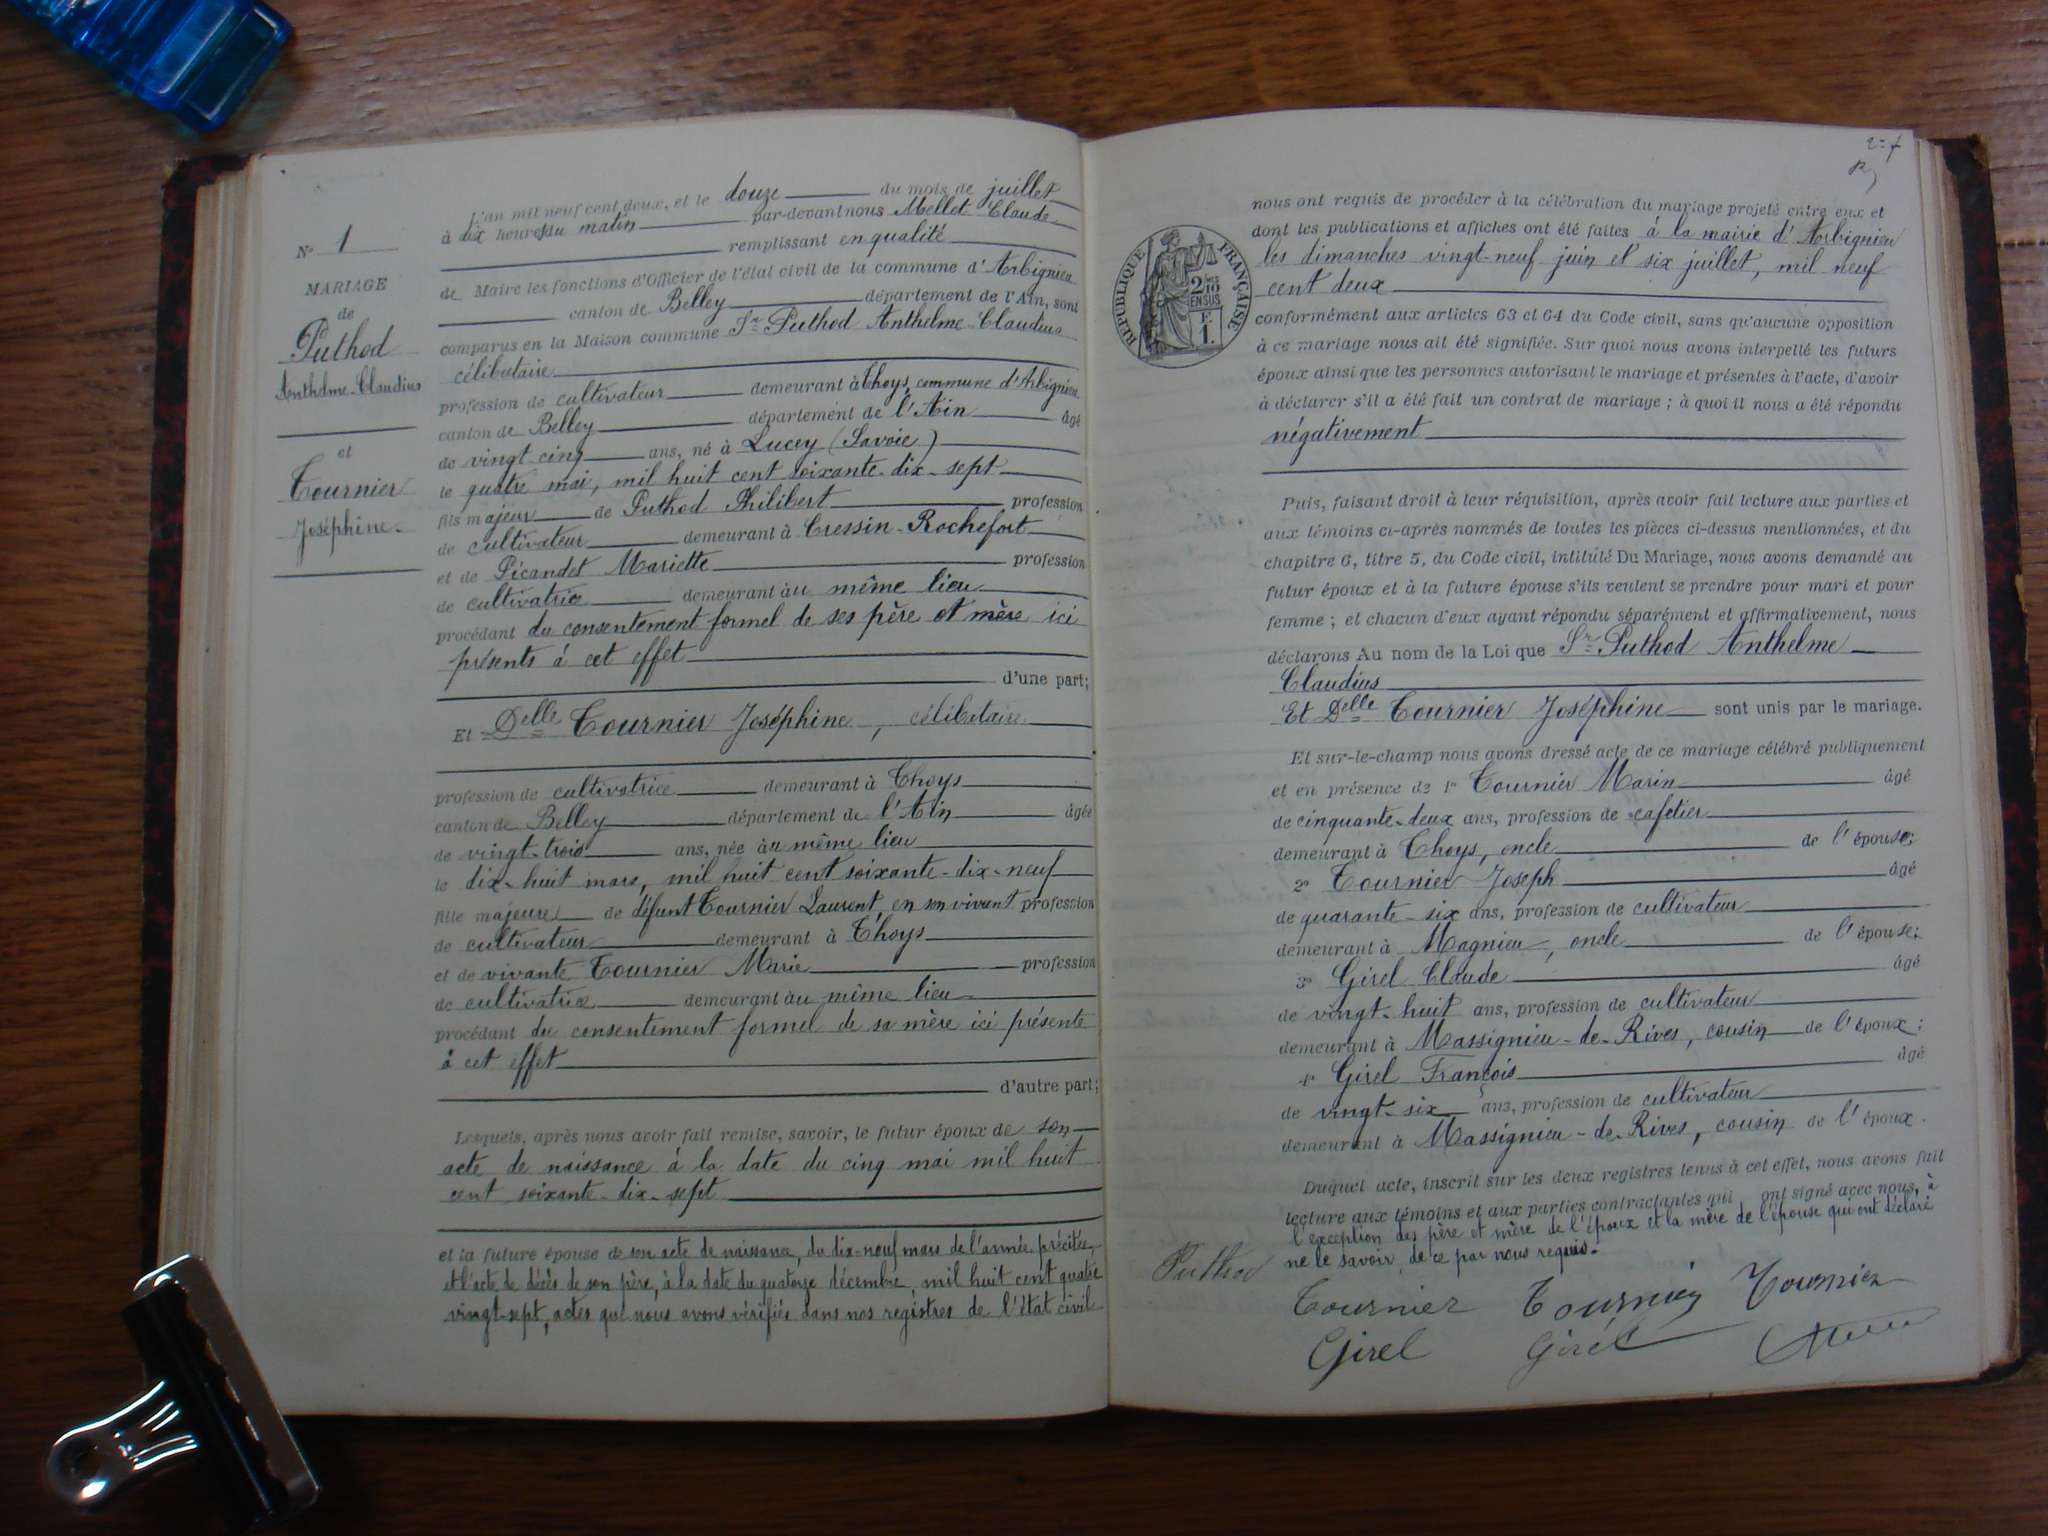 N° 1
MARIAGE
de
Puthod
Anthelme-Claudius
et
Tournier
Joséphine
L'an mil neuf cent deux, et le douze du mois de juillet
à dix heures du matin par-devant nous Mellet Claude
remplissant en qualité
de Maire les fonctions d'Officier de l'état civil de la commune d'Arbignieu
canton de Belley département de l'Ain, sont
comparus en la Maison commune Sr Puthod Anthelme-Claudius
célibataire
profession de cultivateur demeurant à Thoys, commune d'Arbignieu
canton de Belley département de l'Ain âgé
de vingt cinq ans, né à Lucey (Savoie)
le quatre mai, mil huit cent soixante-dix-sept
fils majeur de Puthod Philibert profession
de cultivateur demeurant à Cressin-Rochefort
et de Picandet Mariette profession
de cultivatrice demeurant au même lieu
procédant du consentement formel de ses père et mère ici
présents à cet effet
d'une part;
Et Delle Tournier Joséphine, célibataire
profession de cultivatrice demeurant à Thoys
canton de Belley département de l'Ain âgée
de vingt-trois ans, née au même lieu
le dix-huit mars, mil huit cent soixante-dix-neuf
fille majeure de défunt Tournier Laurent, en son vivant profession
de cultivateur demeurant à Thoys
et de vivante Tournier Marie profession
de cultivatrice demeurant au même lieu
procédant du consentement formel de sa mère ici présente
à cet effet
d'autre part;
Lesquels, après nous avoir fait remise, savoir, le futur époux de son
acte de naissance à la date du cinq mai mil huit
cent soixante-dix-sept
et la future épouse de son acte de naissance, du dix-neuf mars de l'année précitée,
et l'acte de décès de son père, à la date du quatorze décembre, mil huit cent quatre
vingt-sept, actes que nous avons vérifiés dans nos registres de l'état civil
nous ont requis de procéder à la célébration du mariage projeté entre eux et
dont les publications et affiches ont été faites à la mairie d'Arbignieu
les dimanches vingt-neuf juin et six juillet, mil neuf
cent deux
RÉPUBLIQUE FRANÇAISE
2/10
EN SUS
F.
1.
conformément aux articles 63 et 64 du Code civil, sans qu'aucune opposition
à ce mariage nous ait été signifiée. Sur quoi nous avons interpellé les futurs
époux ainsi que les personnes autorisant le mariage et présentes à l'acte, d'avoir
à déclarer s'il a été fait un contrat de mariage ; à quoi il nous a été répondu
négativement
Puis, faisant droit à leur réquisition, après avoir fait lecture aux parties et
aux témoins ci-après nommés de toutes les pièces ci-dessus mentionnées, et du
chapitre 6, titre 5, du Code civil, intitulé Du Mariage, nous avons demandé au
futur époux et à la future épouse s'ils veulent se prendre pour mari et pour
femme ; et chacun d'eux ayant répondu séparément et affirmativement, nous
déclarons Au nom de la Loi que Sr Puthod Anthelme
Claudius
Et Delle Tournier Joséphine sont unis par le mariage.
Et sur-le-champ nous avons dressé acte de ce mariage célébré publiquement
et en présence de 1° Tournier Marin âgé
de cinquante-deux ans, profession de cafetier
demeurant à Thoys, oncle de l'épouse;
2° Tournier Joseph âgé
de quarante-six ans, profession de cultivateur
demeurant à Magnieu, oncle de l'épouse;
3° Girel Claude âgé
de vingt-huit ans, profession de cultivateur
demeurant à Massignieu-de-Rives, cousin de l'époux;
4° Girel François âgé
de vingt-six ans, profession de cultivateur
demeurant à Massignieu-de-Rives, cousin de l'époux.
Duquel acte, inscrit sur les deux registres tenus à cet effet, nous avons fait
lecture aux témoins et aux parties contractantes qui ont signé avec nous, à
l'exception des père et mère de l'époux et la mère de l'épouse qui ont déclaré
ne le savoir, de ce par nous requis.
Puthod
Tournier Tournier Tournier
Girel Girel